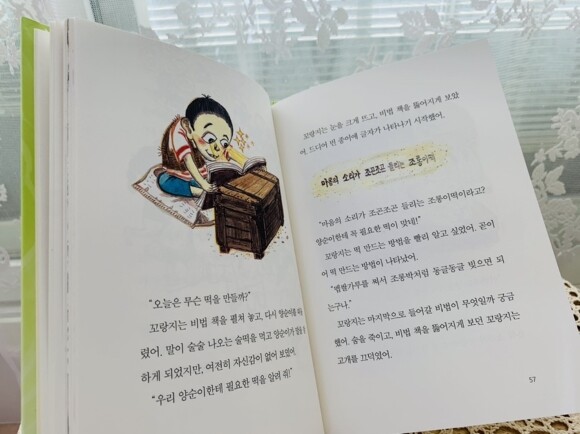 "오늘은 무슨 떡을 만들까?"
꼬랑지는 비법 책을 펼쳐 놓고, 다시 양순이를
렸어. 말이 술술 나오는 술떡을 먹고 양순이가
하게 되었지만, 여전히 자신감이 없어 보였어.
"우리 양순이한테 필요한 떡을 알려 줘!"
꼬랑지는 눈을 크게 뜨고, 비법 책을 뚫어지게 보았
어. 드디어 빈 종이에 글자가 나타나기 시작했어.
마음의 소리가 조곤조곤 들리는 조롱이떡
"마음의 소리가 조곤조곤 들리는 조롱이떡이라고?
양순이한테 꼭 필요한 떡이 맞네!"
꼬랑지는 떡 만드는 방법을 빨리 알고 싶었어. 곧이
어 떡 만드는 방법이 나타났어.
"멥쌀가루를 쪄서 조롱박처럼 둥글둥글 빚으면 되
는구나."
꼬랑지는 마지막으로 들어갈 비법이 무엇일까 궁금
했어. 숨을 죽이고, 비법 책을 뚫어지게 보던 꼬랑지는
고개를 끄덕였어.
57